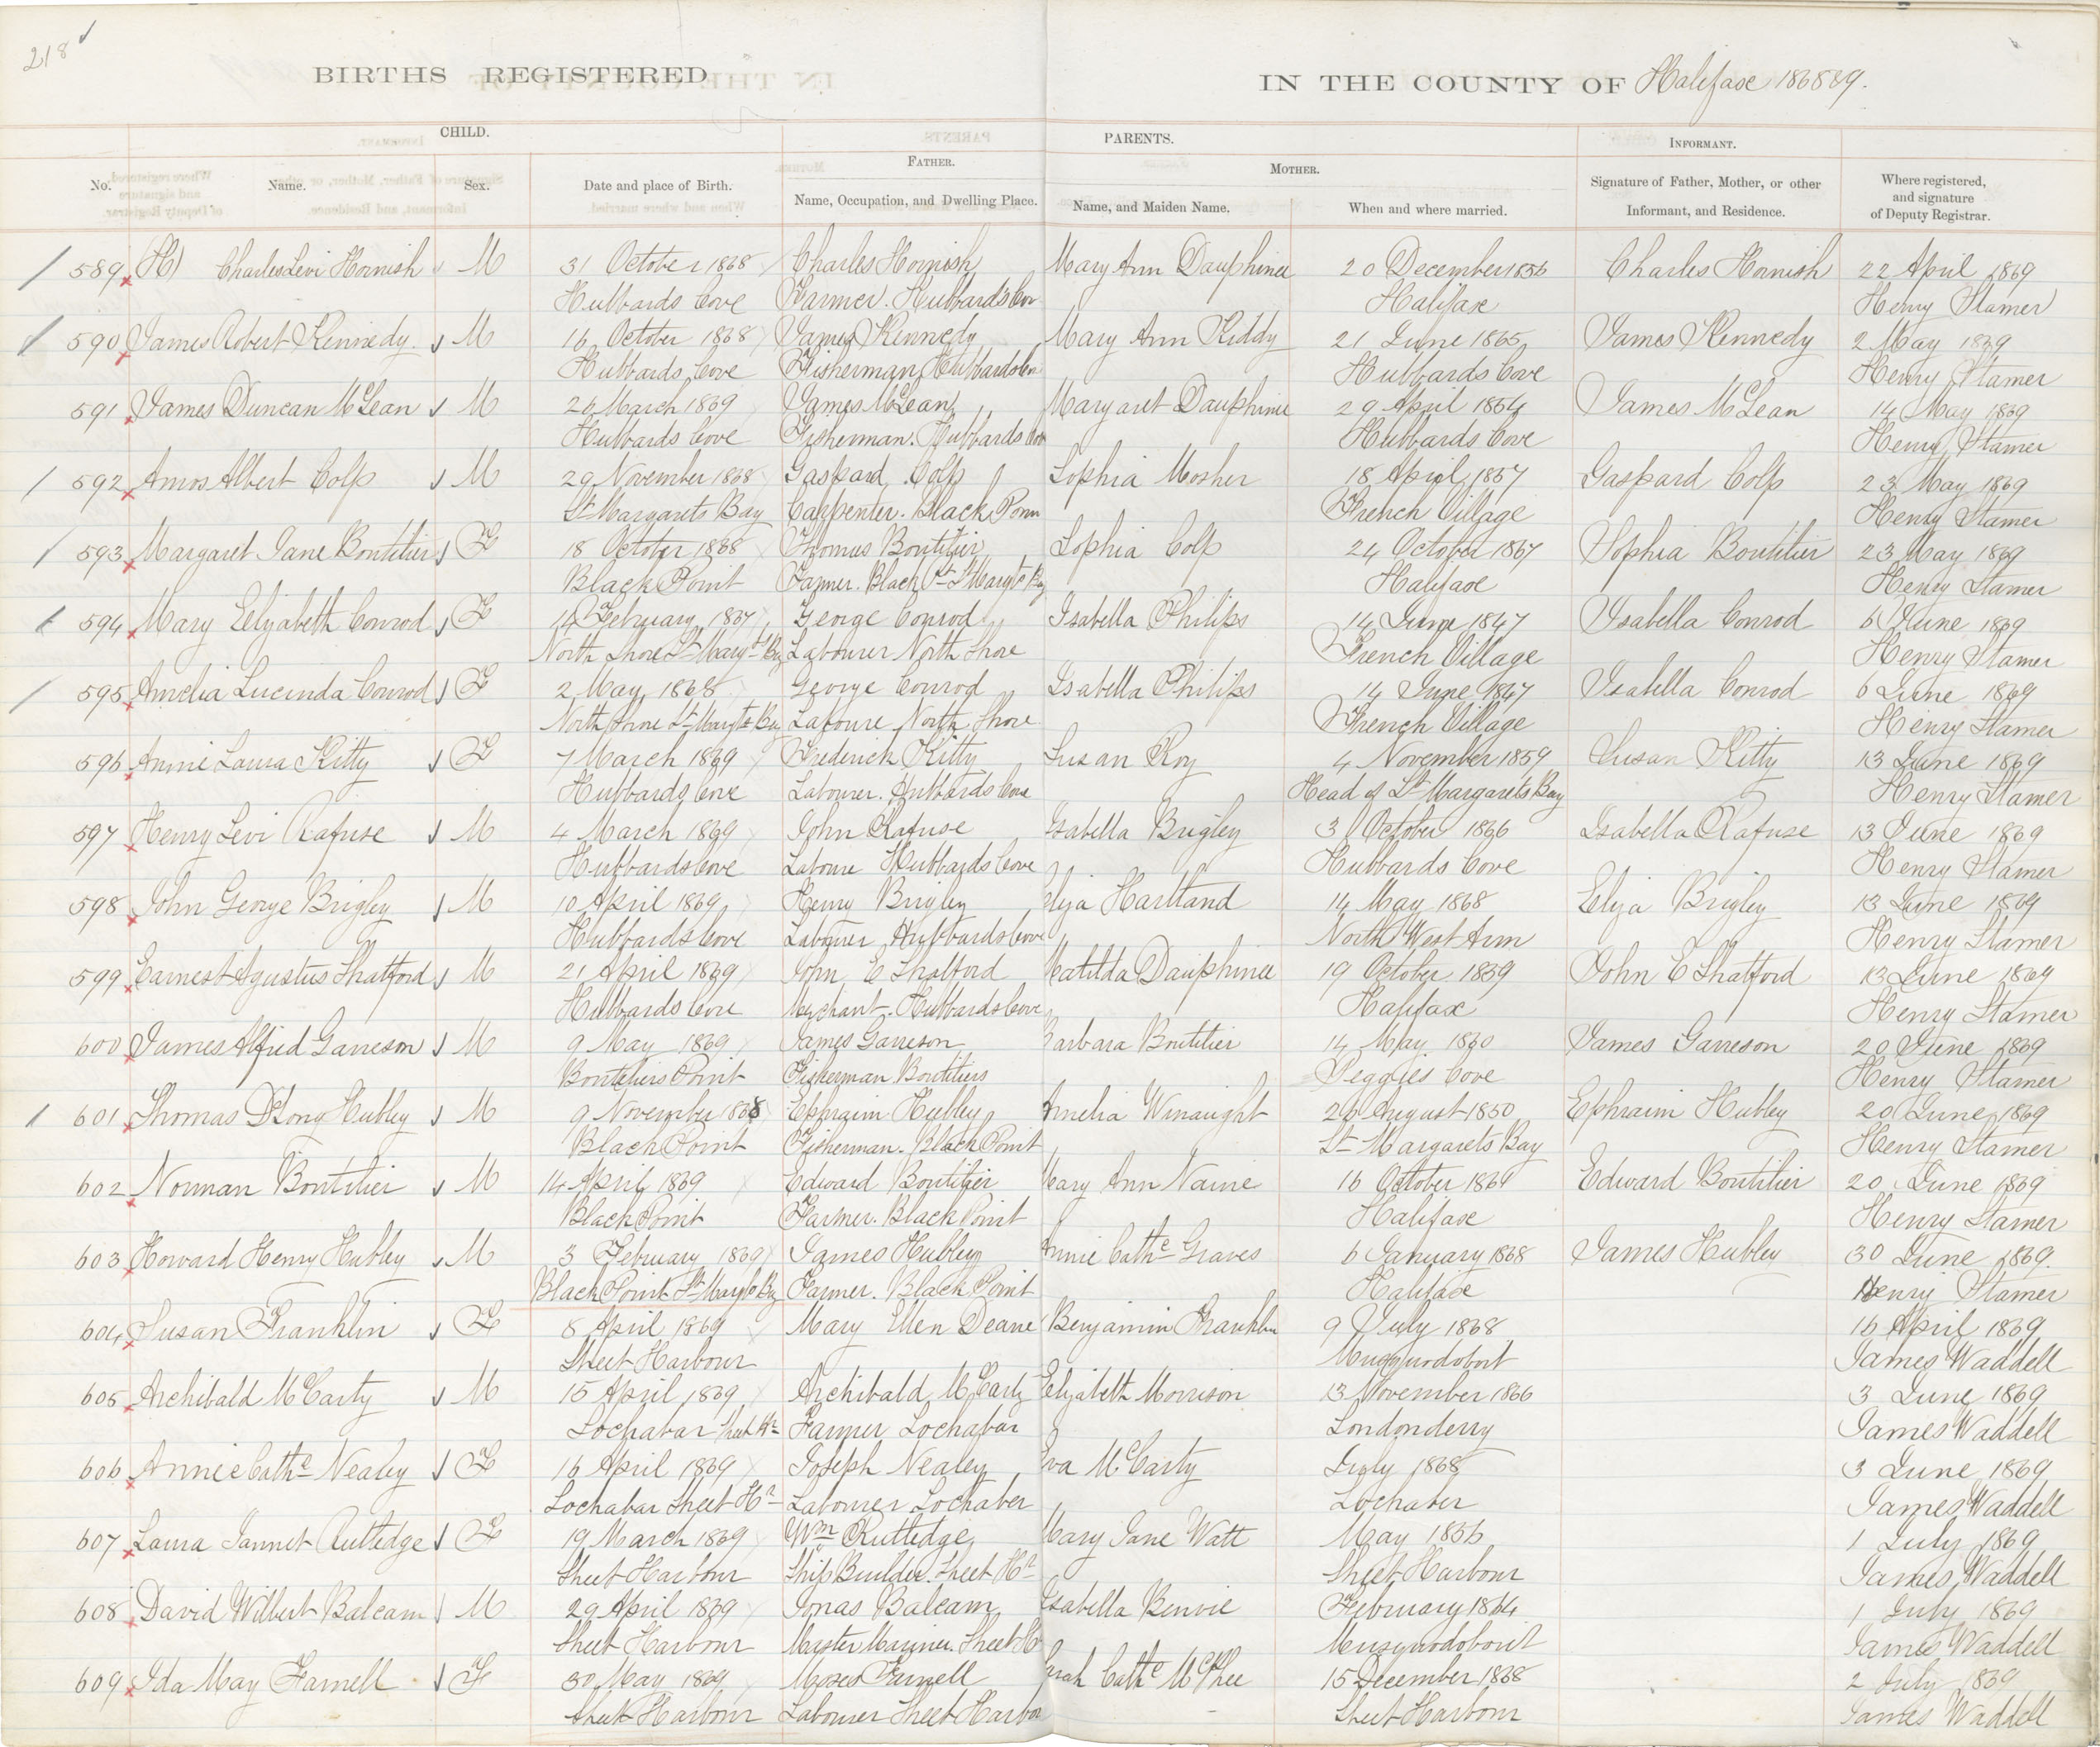 218
BIRTHS REGISTERED IN THE COUNTY OF Halifax 1868 & 9.
CHILD. PARENTS. INFORMANT.
FATHER. MOTHER.
No. Name. Sex. Date and place of Birth. Name, Occupation, and Dwelling Place. Name, and Maiden Name. When and where married. Signature of Father, Mother, or other Informant, and Residence. Where registered, and signature of Deputy Registrar.
589 (H) Charles Levi Hornish M 31 October 1868 Charles Hornish Mary Ann Dauphinee 20 December 1856 Charles Hornish 22 April 1869
Hubbards Cove Farmer. Hubbards Cov Halifax Henry Stamer
590 James Robert Kennedy M 16 October 1868 James Kennedy Mary Ann Kiddy 21 June 1865 James Kennedy 2 May 1869
Hubbards Cove Fisherman Hubbards Cov Hubbards Cove Henry Stamer
591 James Duncan McLean M 26 March 1869 James McLean Margaret Dauphinee 29 April 1864 James McLean 14 May 1869
Hubbards Cove Fisherman. Hubbards Cove Hubbards Cove Henry Stamer
592 Amos Albert Colp M 29 November 1868 Gaspard Colp Sophia Mosher 18 April 1857 Gaspard Colp 23 May 1869
St Margarets Bay Carpenter. Black Poin French Village Henry Stamer
593 Margaret Jane Boutilier F 18 October 1868 Thomas Boutilier Sophia Colp 24 October 1867 Sophia Boutilier 23 May 1869
Black Point Farmer. Black Pt St Margts By Halifax Henry Stamer
594 Mary Elizabeth Conrod F February 1867 George Conrod Isabella Philips 14 June 1847 Isabella Conrod 6 June 1869
North Shore St Margts By Labourer North Shore French Village Henry Stamer
595 Amelia Lucinda Conrod F 2 May 1868 George Conrod Isabella Philips 14 June 1847 Isabella Conrod 6 June 1869
North Shore St Margts By Laboure North Shore French Village Henry Stamer
596 Annie Laura Kitty F 7 March 1869 Frederick Kitty Susan Roy 4 November 1859 Susan Kitty 13 June 1869
Hubbards Cove Labourer. Hubbards Cove Head of St Margarets Bay Henry Stamer
597 Henry Levi Rafuse M 4 March 1869 John Rafuse Isabella Brigley 3 October 1866 Isabella Rafuse 13 June 1869
Hubbards Cove Laboure Hubbards Cove Hubbards Cove Henry Stamer
598 John George Brigley M 10 April 1869 Henry Brigley Eliza Hartland 14 May 1868 Eliza Brigley 13 June 1869
Hubbards Cove Labourer Hubbards Cove North West Arm Henry Stamer
599 Earnest Agustus Shatford M 21 April 1869 John E Shatford Matilda Dauphinee 19 October 1859 John E Shatford 13 June 1869
Hubbards Cove Merchant. Hubbards Cove Halifax Henry Stamer
600 James Alfred Garreson M 9 May 1869 James Garreson Barbara Boutilier 14 May 1860 James Garreson 20 June 1869
Boutiliers Point Fisherman Boutiliers Peggies Cove Henry Stamer
601 Thomas DLong Hubley M 9 November 1868 Ephraim Hubley Amelia Winaught 26 August 1850 Ephraim Hubley 20 June 1869
Black Point Fisherman. Black Point St Margarets Bay Henry Stamer
602 Norman Boutilier M 14 April 1869 Edward Boutilier Mary Ann Naine 16 October 1861 Edward Boutilier 20 June 1869
Black Point Farmer. Black Point Halifax Henry Stamer
603 Howard Henry Hubley M 3 February 1869 James Hubley Annie Cathe Graves 6 January 1868 James Hubley 30 June 1869.
Black Point St Margts By Farmer. Black Point Halifax Henry Stamer
604 Susan Franklin F 8 April 1869 Mary Ellen Deane Benjamin Franklin 9 July 1868 16 April 1869
Sheet Harbour Musquodobort James Waddell
605 Archibald McCarty M 15 April 1869 Archibald McCarty Elizabeth Morrison 13 November 1866 3 June 1869
Lochabar Sheet Hr Farmer Lochabar Londonderry James Waddell
606 Annie Cathe Nealey F 16 April 1869 Joseph Nealey Eva McCarty July 1868 3 June 1869
Lochabar Sheet Hr Labourer Lochaber Lochaber James Waddell
607 Laura Jannet Rutledge F 19 March 1869 Wm Rutledge Mary Jane Watt May 1856 1 July 1869
Sheet Harbour Ship Builder. Sheet Hr Sheet Harbour James Waddell
608 David Wilbert Balcam M 29 April 1869 Jonas Balcam Isabella Benvie February 1864 1 July 1869
Sheet Harbour Master Mariner. Sheet Hr Musquodoboit James Waddell
609 Ida May Farnell F 30 May 1869 Moses Farnell Sarah Cathe McPhee 15 December 1868 2 July 1869
Sheet Harbour Labourer Sheet Harbor Sheet Harbour James Waddell